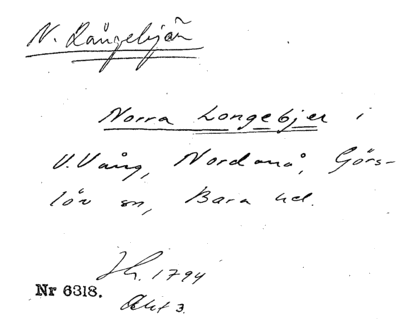 N. Långebjär
Norra Longebjer i
V. Vång, Nordanå, Görs-
löv sn, Bara hd.
Jh. 1794
Nr 6318.
Akt 3.